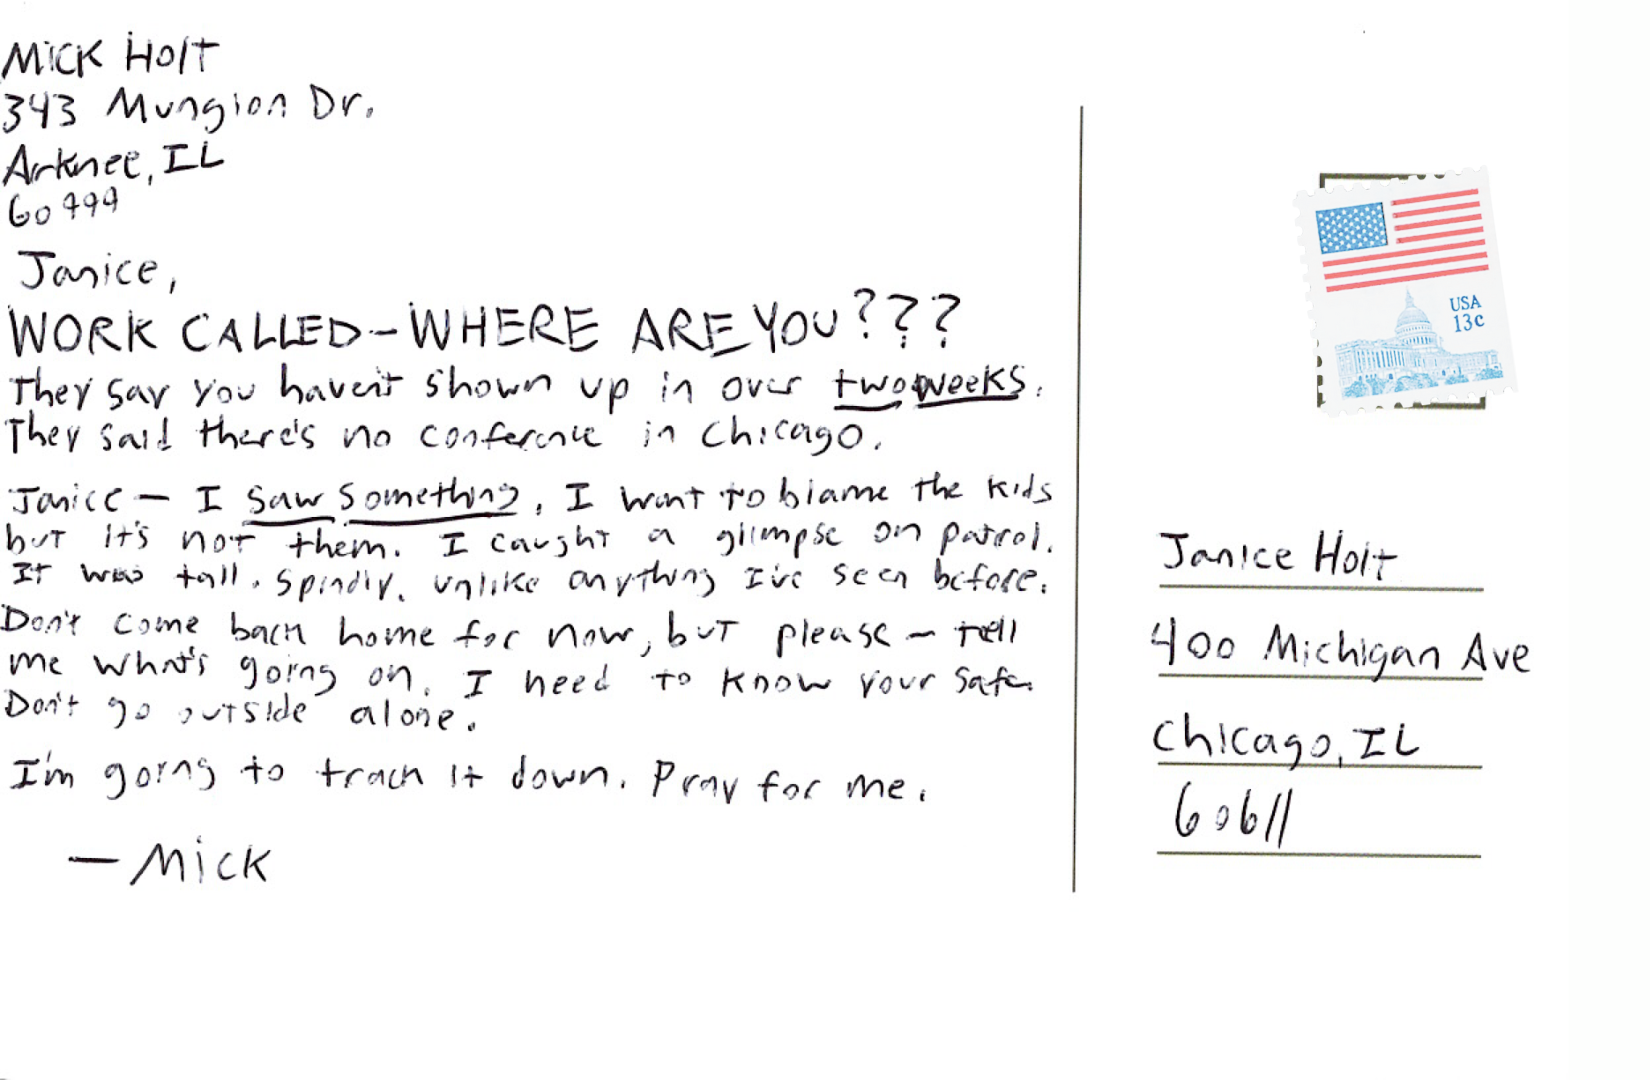 Mick Holt
343 Mungion Dr.
Arknee, IL
60999
Janice,
WORK CALLED - WHERE ARE YOU???
They say you haven't shown up in over two weeks.
They said there's no conference in Chicago.
Janice - I saw something. I want to blame the kids
but it's not them. I caught a glimpse on patrol.
It was tall. Spindly. Unlike anything I've seen before.
Don't come back home for now, but please - tell
me what's going on. I need to know your safe.
Don't go outside alone.
I'm going to track it down. Pray for me.
- Mick
USA
13c
Janice Holt
400 Michigan Ave
Chicago, IL
60611